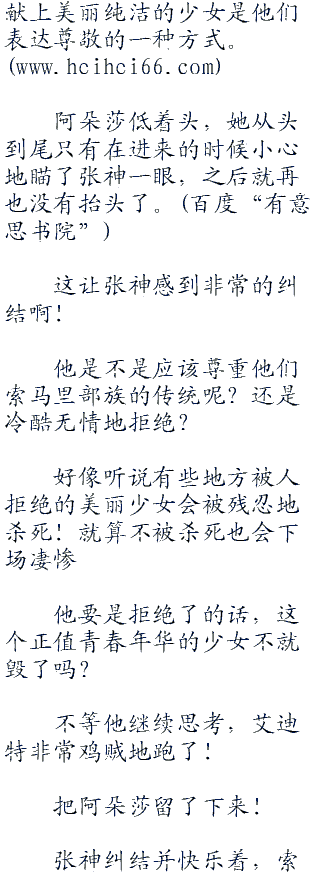 献上美丽纯洁的少女是他们
表达尊敬的一种方式。
(www.hcihci66.com)
阿朵莎低着头，她从头
到尾只有在进来的时候小心
地瞄了张神一眼，之后就再
也没有抬头了。(百度“有意
思书院”)
这让张神感到非常的纠
结啊！
他是不是应该尊重他们
索马里部族的传统呢？还是
冷酷无情地拒绝？
好像听说有些地方被人
拒绝的美丽少女会被残忍地
杀死！就算不被杀死也会下
场凄惨
他要是拒绝了的话，这
个正值青春年华的少女不就
毁了吗？
不等他继续思考，艾迪
特非常鸡贼地跑了！
把阿朵莎留了下来！
张神纠结并快乐着，索